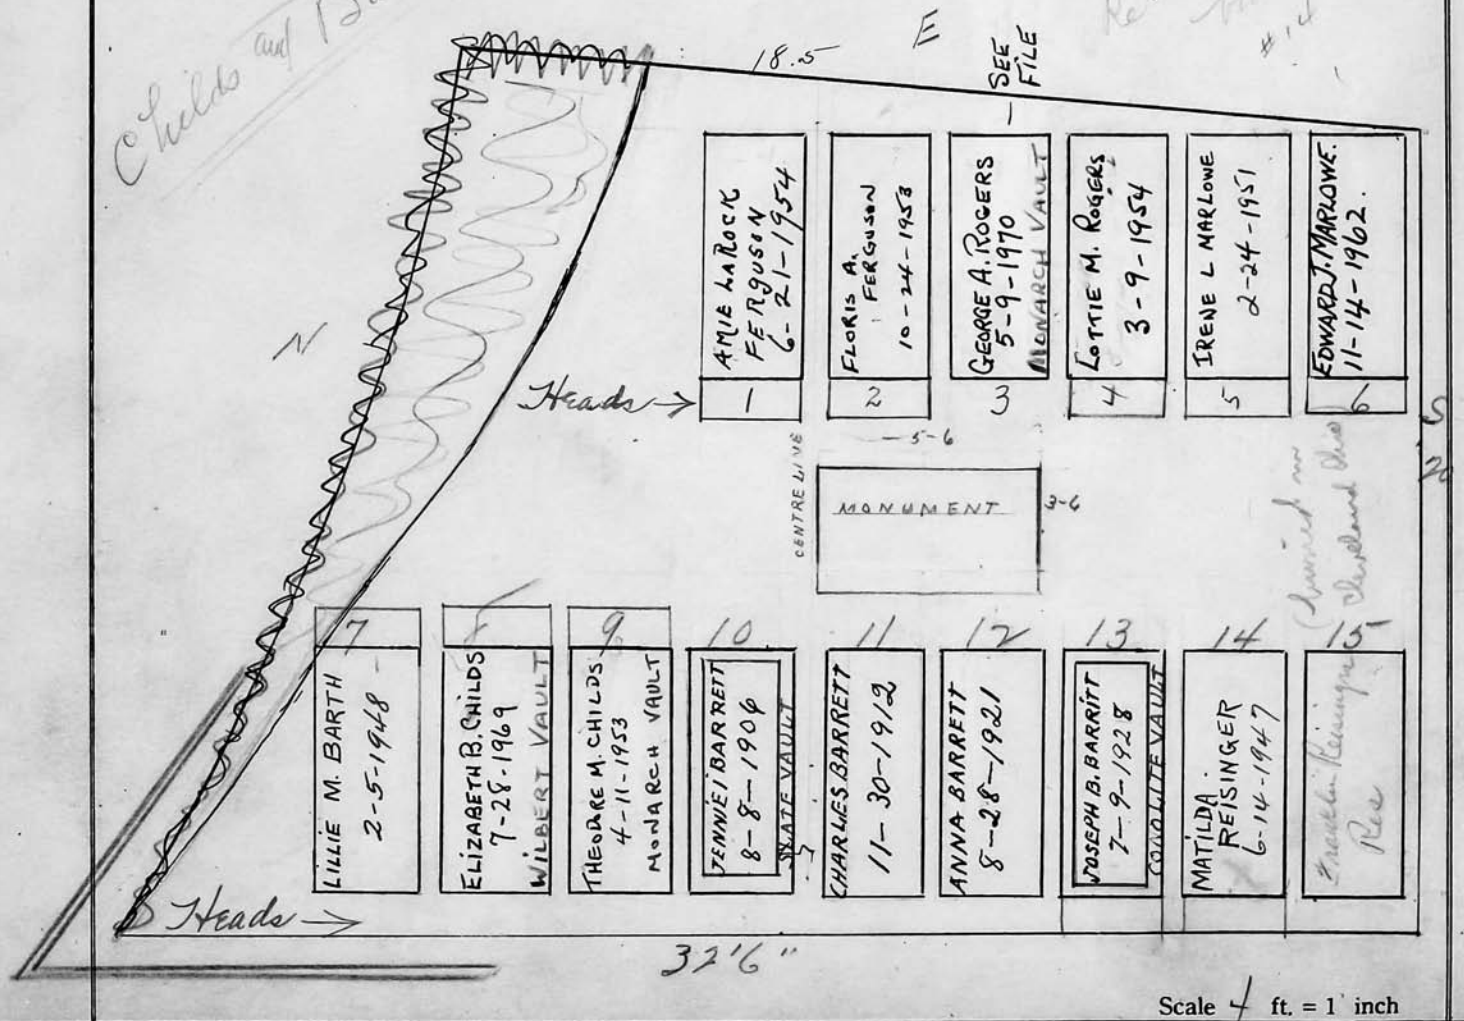 Childs and
E
#14
18.5
— SEE
FILE
AMIE LAROCK
FERGUSON
6-21-1954
FLORIS A.
FERGUSON
10-24-1953
GEORGE A. ROGERS
5-9-1970
MONARCH VAULT
LOTTIE M. ROGERS
3-9-1954
IRENE L MARLOWE
2-24-1951
EDWARD J. MARLOWE.
11-14-1962.
N
Heads →
1
2
3
4
5
6
S
20
5-6
CENTRE LINE
MONUMENT
3-6
(buried in
Cleveland Ohio)
7
8
9
10
11
12
13
14
15
LILLIE M. BARTH
2-5-1948
ELIZABETH B. CHILDS
7-28-1969
WILBERT VAULT
THEODRE M. CHILDS
4-11-1953
MONARCH VAULT
JENNIE I BARRETT
8-8-1906
SLATE VAULT
CHARLIES BARRETT
11-30-1912
ANNA BARRETT
8-28-1921
JOSEPH B. BARRITT
7-9-1928
CONOLITE VAULT
MATILDA
REISINGER
6-14-1947
Franklin Reisinger
Res
Heads →
32'6"
Scale 4 ft. = 1 inch